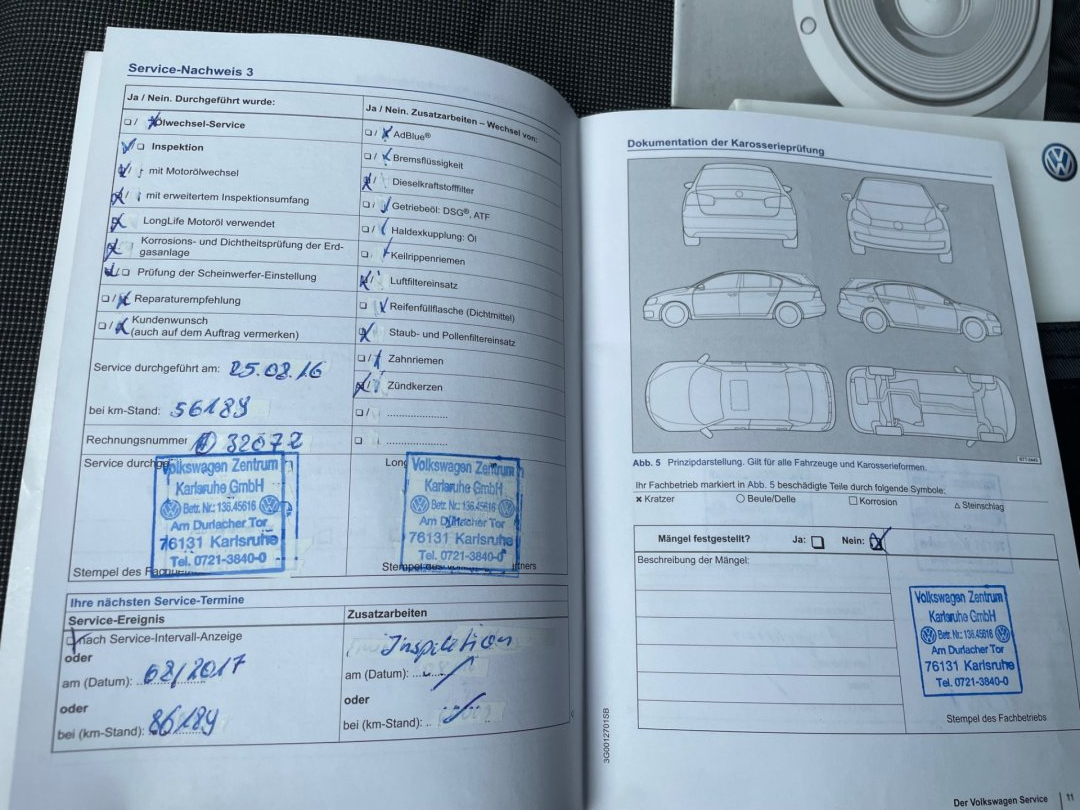 Service-Nachweis 3
Ja / Nein. Durchgeführt wurde:
Ölwechsel-Service
Inspektion
mit Motorölwechsel
mit erweitertem Inspektionsumfang
LongLife Motoröl verwendet
Korrosions- und Dichtheitsprüfung der Erd-
gasanlage
Prüfung der Scheinwerfer-Einstellung
Reparaturempfehlung
Kundenwunsch
(auch auf dem Auftrag vermerken)
Service durchgeführt am: 25.08.16
bei km-Stand: 56189
Rechnungsnummer 32072
Service durchge
Volkswagen Zentrum
Karlsruhe GmbH
Betr. Nr.: 136.45616
Am Durlacher Tor
76131 Karlsruhe
Tel. 0721-3840-0
Stempel des
Ja / Nein. Zusatzarbeiten – Wechsel von:
AdBlue®
Bremsflüssigkeit
Dieselkraftstofffilter
Getriebeöl: DSG®, ATF
Haldexkupplung: Öl
Keilrippenriemen
Luftfiltereinsatz
Reifenfüllflasche (Dichtmittel)
Staub- und Pollenfiltereinsatz
Zahnriemen
Zündkerzen
Long
Volkswagen Zentrum
Karlsruhe GmbH
Betr. Nr.: 136.45616
Am Durlacher Tor
76131 Karlsruhe
Tel. 0721-3840-0
Stempel des
Ihre nächsten Service-Termine
Service-Ereignis
nach Service-Intervall-Anzeige
oder
am (Datum): 08/2017
oder
bei (km-Stand): 86189
Zusatzarbeiten
Inspektion
am (Datum):
oder
bei (km-Stand):
Dokumentation der Karosserieprüfung
Abb. 5 Prinzipdarstellung. Gilt für alle Fahrzeuge und Karosserieformen.
Ihr Fachbetrieb markiert in Abb. 5 beschädigte Teile durch folgende Symbole:
× Kratzer ○ Beule/Delle □ Korrosion △ Steinschlag
Mängel festgestellt? Ja: Nein:
Beschreibung der Mängel:
Volkswagen Zentrum
Karlsruhe GmbH
Betr. Nr.: 136.45616
Am Durlacher Tor
76131 Karlsruhe
Tel. 0721-3840-0
Stempel des Fachbetriebs
3G0012701SB
Der Volkswagen Service 11